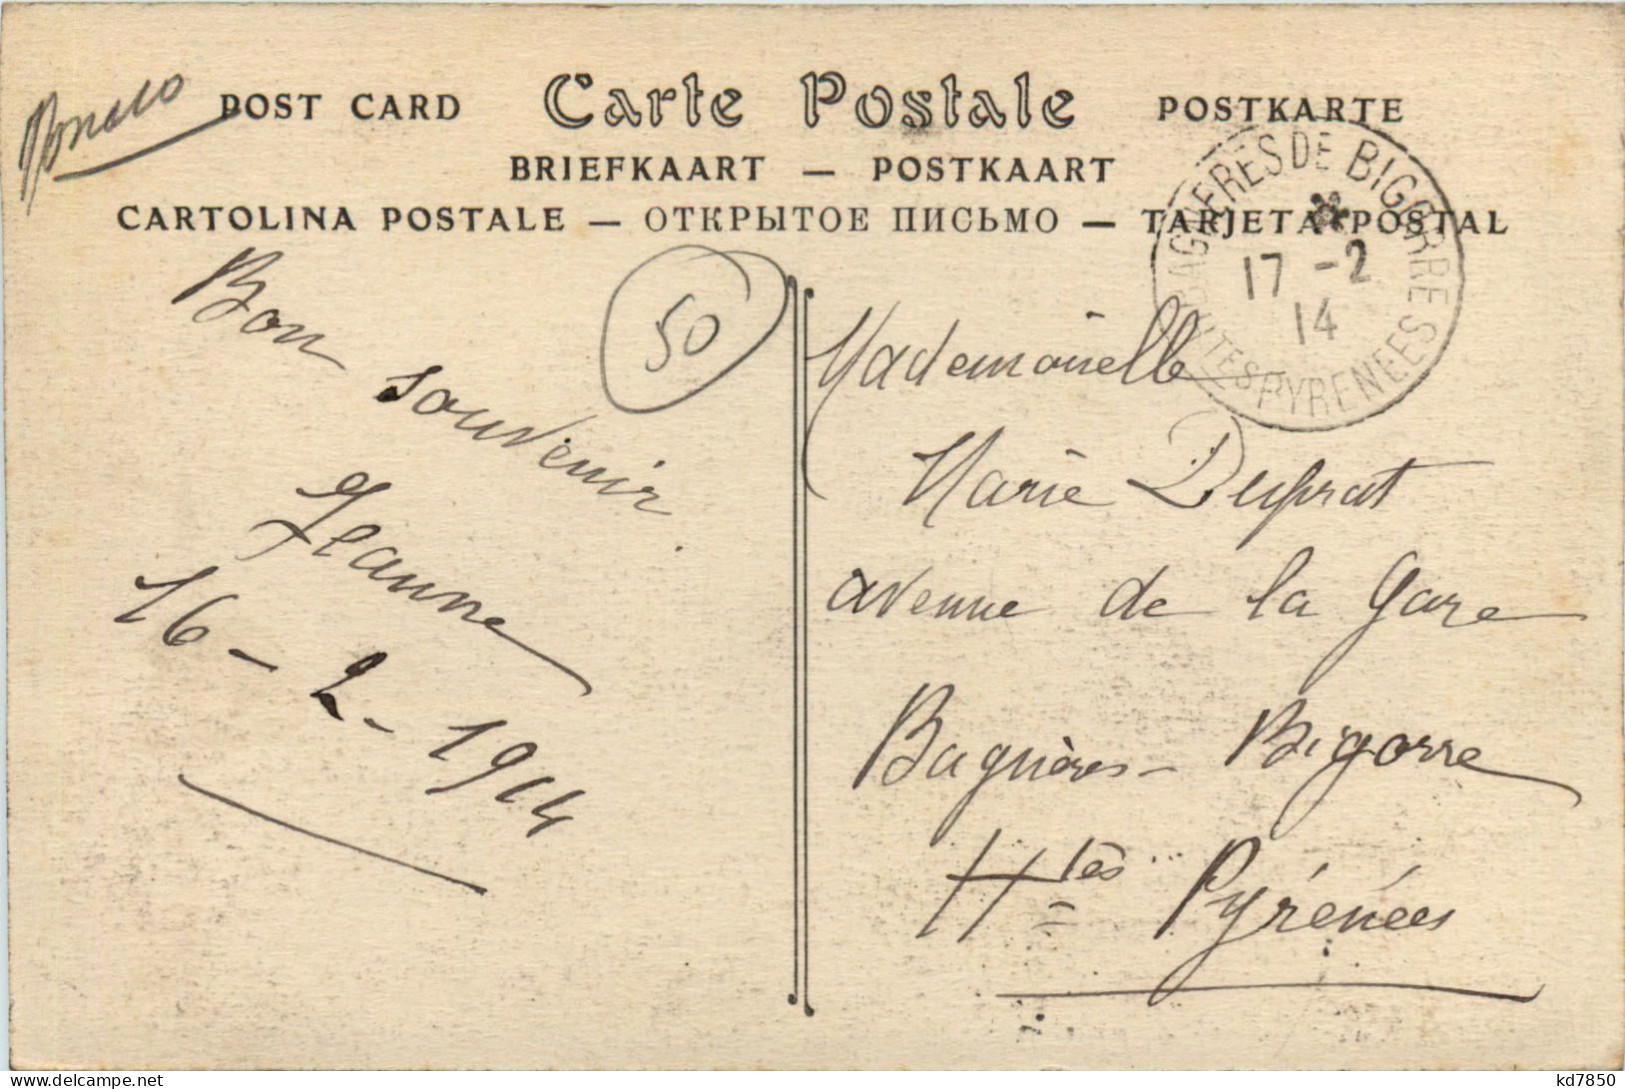 Monaco
POST CARD Carte Postale POSTKARTE
BRIEFKAART — POSTKAART
CARTOLINA POSTALE — ОТКРЫТОЕ ПИСЬМО — TARJETA POSTAL
BAGNERES DE BIGORRE
17 -2
14
HTES PYRENEES
50
Bon souvenir
Jeanne
16-2-1914
Mademoiselle
Marie Duprat
avenue de la Gare
Bagnères-Bigorre
Htes Pyrénées
kd7850